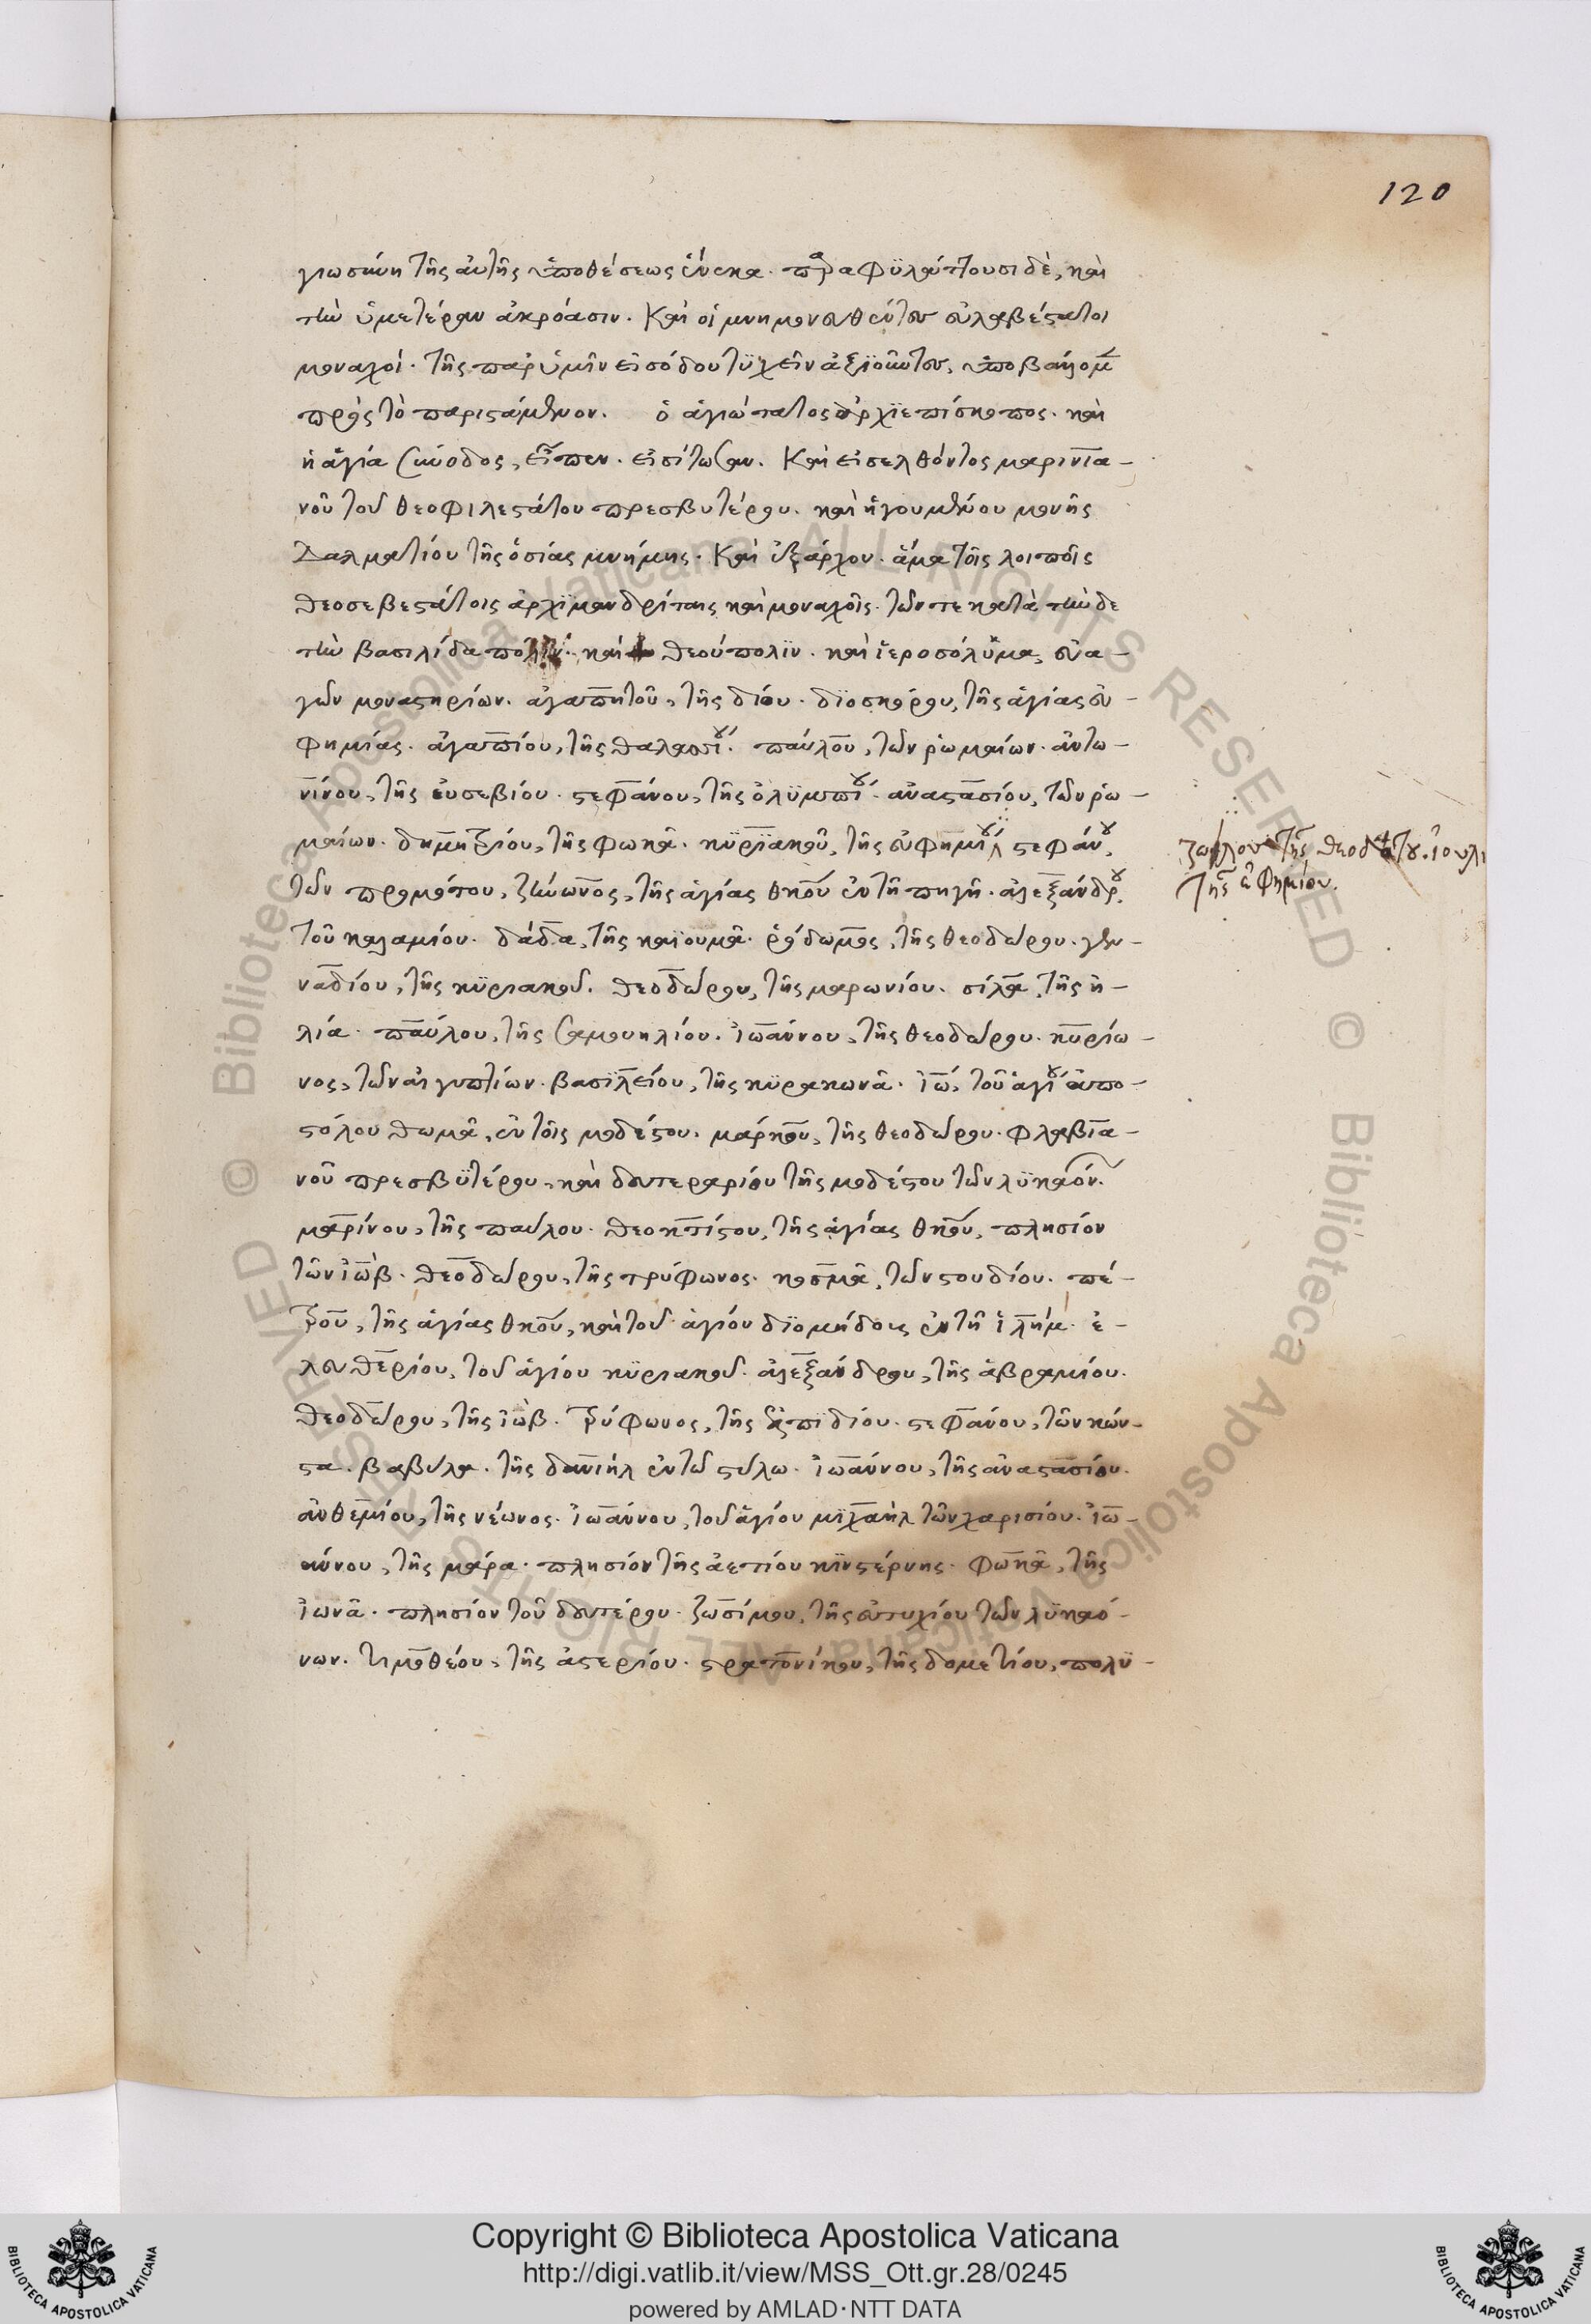 120
γιωσύνη τῆς αὐτῆς ὑποθέσεως ἕνεκα. παραφϋλάττουσι δὲ, καὶ
τὴν ὑμετέραν ἀκρόασιν. Καὶ οἱ μνημονευθέντες εὐλαβέστατοι
μοναχοὶ. τῆς παρ' ὑμῖν εἰσόδου τϋχεῖν ἀξϊοῦντες, ὑποβάλομ
πρὸς τὸ παριστάμενον. ὁ ἁγιώτατος ἀρχϊεπίσκοπος. καὶ
ἡ ἁγία σύνοδος, εἶπεν. εἰσίτωσαν. Καὶ εἰσελθόντος μαρινια-
νοῦ τοῦ θεοφιλεστάτου πρεσβυτέρου. καὶ ἡγουμένου μονῆς
Δαλματίου τῆς ὁσίας μνήμης. Καὶ ἐξάρχου. ἅμα τοῖς λοιποῖς
θεοσεβεστάτοις ἀρχϊμανδρίταις καὶ μοναχοῖς. τῶν τε κατὰ τήνδε
τὴν βασιλίδα πόλιν. καὶ θεούπολϊν. καὶ ἱεροσόλϋμα, εὐα-
γῶν μοναστηρίων. ἀγαπητοῦ, τῆς δίου. δϊοσκόρου, τῆς ἁγίας εὐ-
φημίας. ἀγαπίου, τῆς θαλασσί. παύλου, τῶν ῥωμαίων. ἀντω-
νίνου, τῆς εὐσεβίου. στεφάνου, τῆς ὀλϋμπί. ἀναστασίου, τῶν ῥω-
μαίων. δημητρίου, τῆς φωκᾶ. κϋρϊακοῦ, τῆς εὐφημί στεφάν,
τῶν προμότου, ζήνωνος, τῆς ἁγίας θκου ἐν τῇ πηγῇ. ἀλεξάνδρ,
τοῦ καλαμίου. δάδα, τῆς καϊουμᾶ. ῥόδωμος, τῆς θεοδώρου. γεν-
ναδίου, τῆς κϋριακοῦ. θεοδώρου, τῆς μαρωνίου. σίλα, τῆς ἠ-
λία. παύλου, τῆς σαμουηλίου. ἰωάννου, τῆς θεοδώρου. κυρίω-
νος, τῶν αἰγυπτίων. βασϊλείου, τῆς κϋρακωνᾶ. ἰω, τοῦ ἁγί ἀπο-
στόλου θωμᾶ, ἐν τοῖς μοδέστου. μάρκου, τῆς θεοδώρου. φλαβια-
νοῦ πρεσβϋτέρου, καὶ δευτεραρίου τῆς μοδέστου τῶν λϋκαόν.
μαρίνου, τῆς παύλου. θεοκτίστου, τῆς ἁγίας θκου, πλησίον
τῶν ἰὼβ. θεοδώρου, τῆς τρύφωνος. κοσμᾶ, τῶν στουδίου. πέ-
τρου, τῆς ἁγίας θκου, καὶ τοῦ ἁγίου δϊομήδους ἐν τῇ ἱλήμ. ἐ-
λευθερίου, τοῦ ἁγίου κϋριακοῦ. ἀλεξάνδρου, τῆς ἀβραμίου.
θεοδώρου, τῆς ἰὼβ. τρύφωνος, τῆς ἐλπϊδίου. στεφάνου, τῶν κών-
στα. βαβύλα. τῆς δανιὴλ ἐν τῶ στύλω. ἰωάννου, τῆς ἀναστασίου.
ἀνθεμίου, τῆς νέωνος. ἰωάννου, τοῦ ἁγίου μϊχαὴλ τῶν χαρισίου. ἰω-
άννου, τῆς μάρα. πλησίον τῆς ἀετίου κϊνστέρνης. φωκᾶ, τῆς
ἰωνᾶ. πλησίον τοῦ δευτέρου. ζωσίμου, τῆς εὐτυχίου τῶν λϋκαό-
νων. τιμοθέου, τῆς ἀστερίου. στρατονίκου, τῆς δομετίου, πολϋ-
ζωΐλου τῆς θεοδότου. ἰουλι
τῆς εὐφημίου.
Copyright © Biblioteca Apostolica Vaticana
http://digi.vatlib.it/view/MSS_Ott.gr.28/0245
powered by AMLAD·NTT DATA